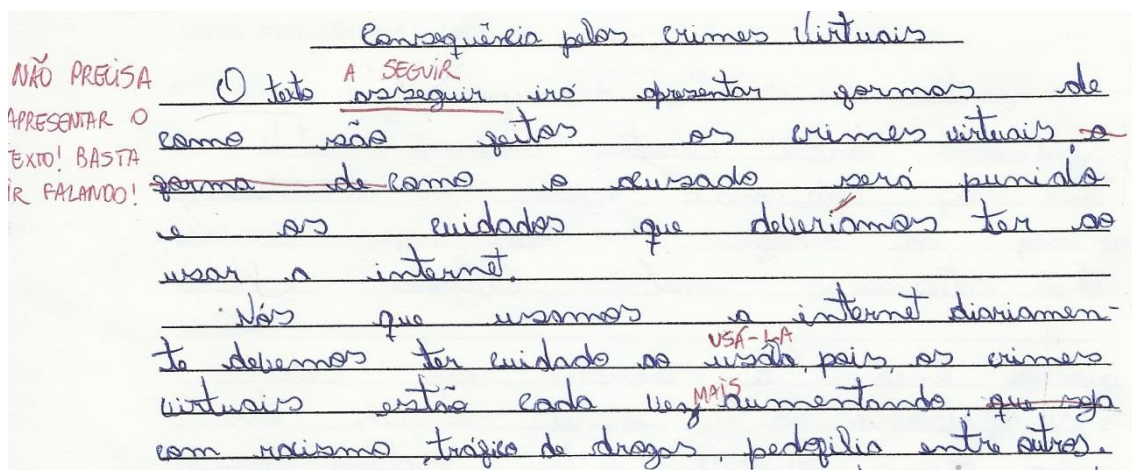 Consequência pelos crimes virtuais
NÃO PRECISA
APRESENTAR O
TEXTO! BASTA
IR FALANDO!
A SEGUIR
O texto asseguir irá apresentar formas de
como são feitos os crimes virtuais a
forma de como o acusado será punido
e os cuidados que deveríamos ter ao
usar a internet.
Nós que usamos a internet diariamen-
USÁ-LA
te devemos ter cuidado ao usála, pois, os crimes
MAIS
virtuais estão cada vez aumentando, que seja
com racismo, tráfico de drogas, pedofilia entre outros.